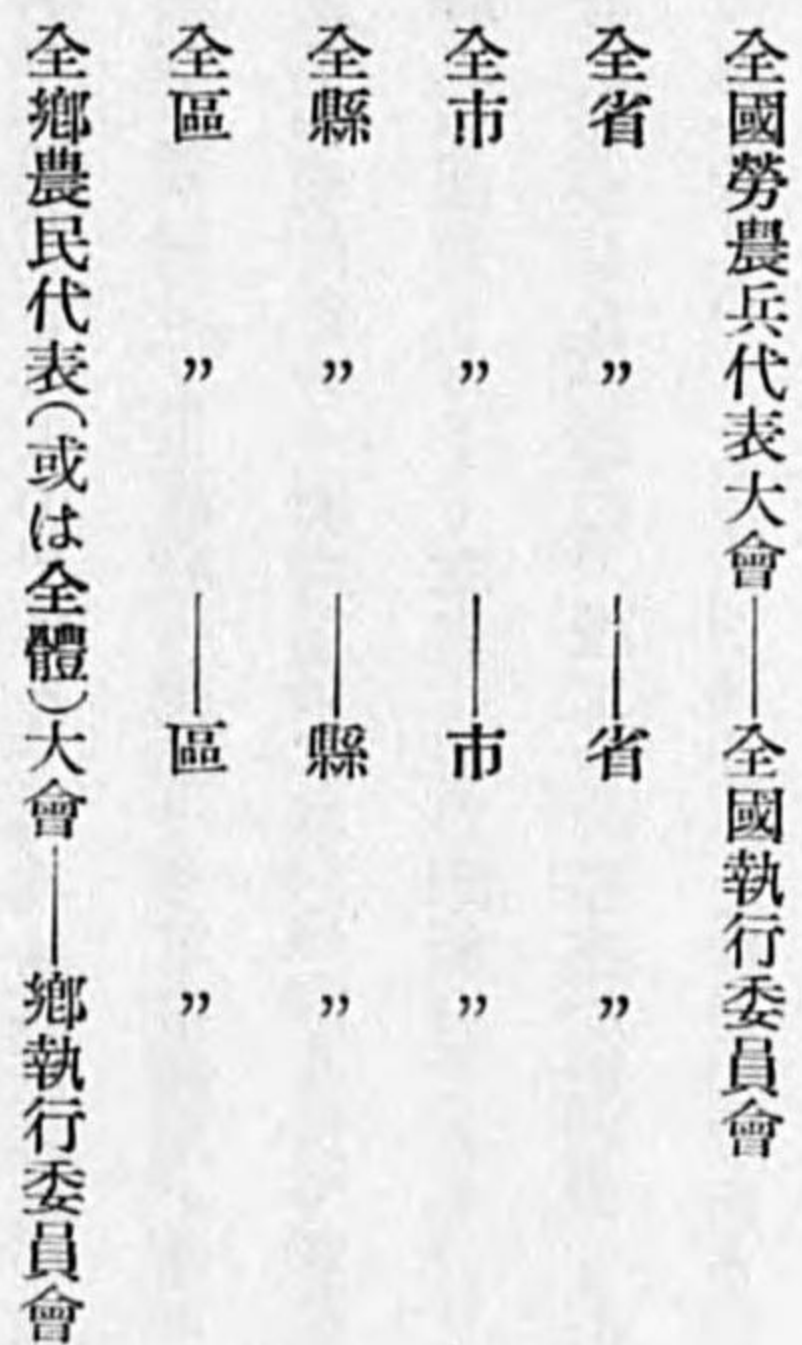 全國勞農兵代表大會――全國執行委員會
全省　〃　――省　〃
全市　〃　――市　〃
全縣　〃　――縣　〃
全區　〃　――區　〃
全鄕農民代表(或は全體)大會――鄕執行委員會